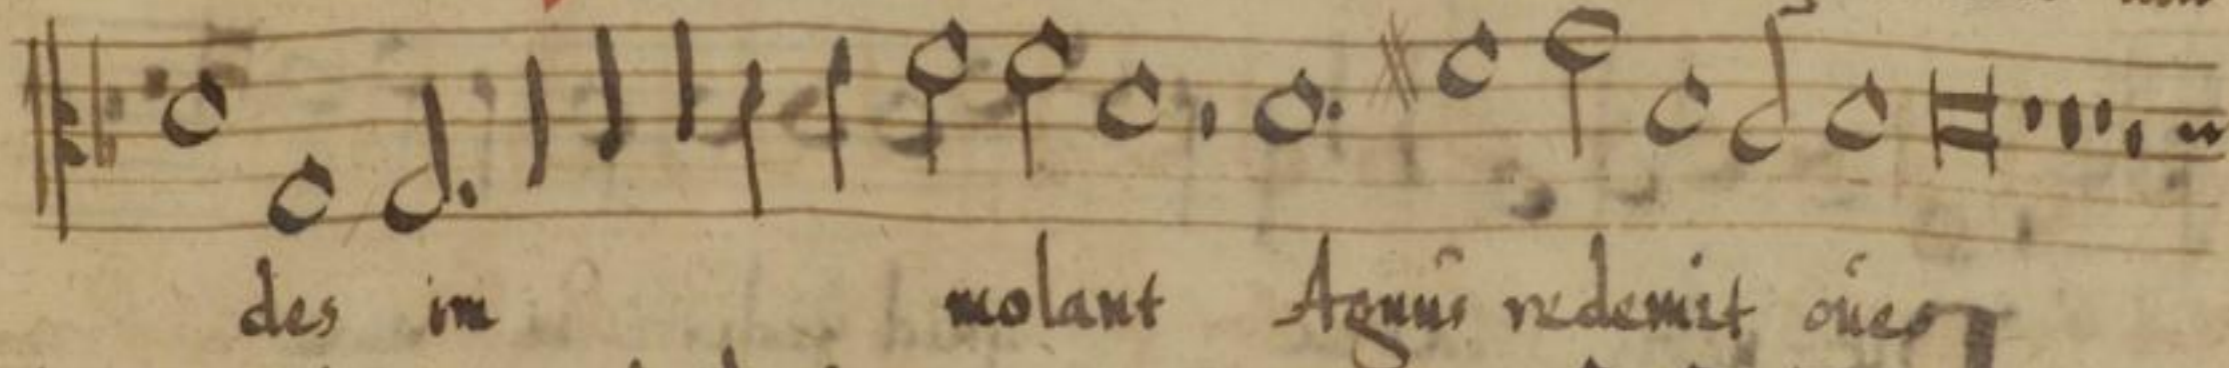 des im molant Agnus redemit oues